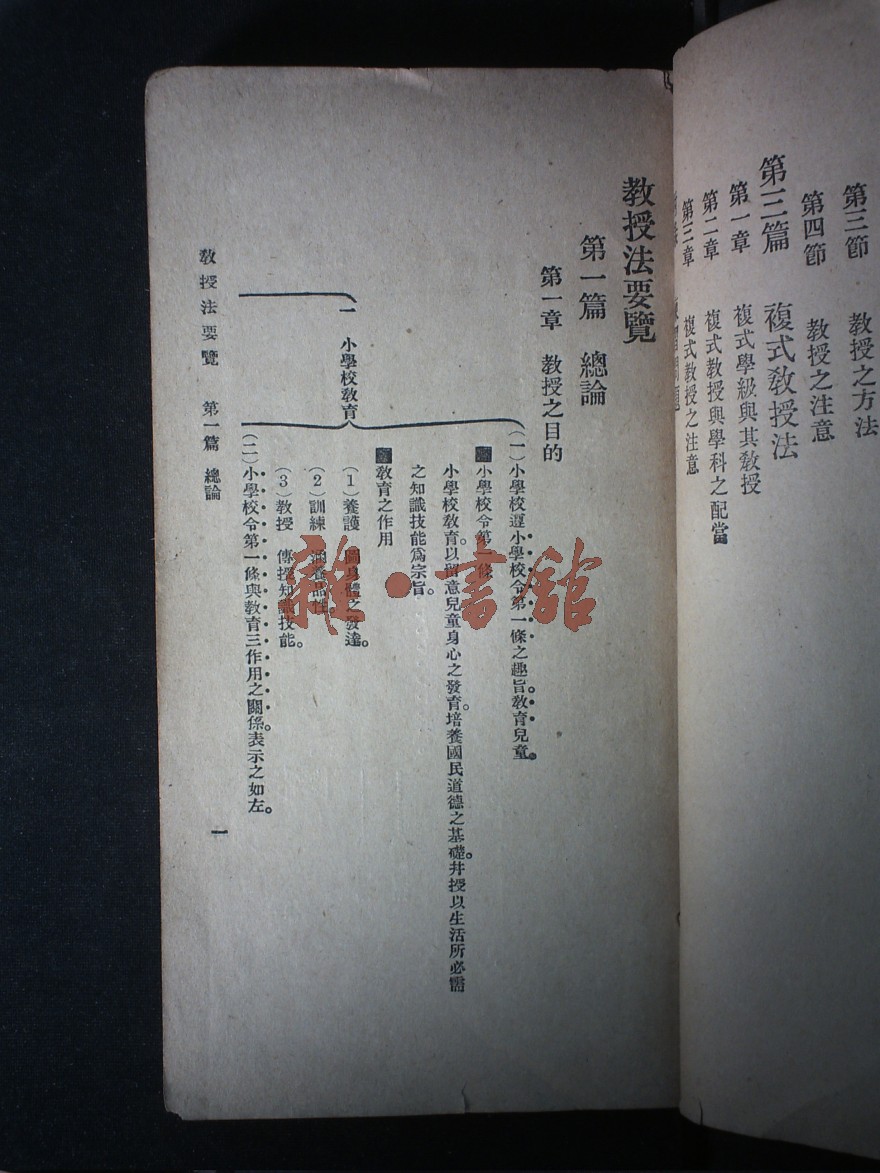 第三節　教授之方法
第四節　教授之注意
第三篇　複式教授法
第一章　複式學級與其教授
第二章　複式教授與學科之配當
第三章　複式教授之注意
教授法要覽
第一篇　總論
第一章　教授之目的
一　小學校教育
(一)小學校遵小學校令第一條之趣旨。教育兒童。
小學校令第一條
小學校教育。以留意兒童身心之發育。培養國民道德之基礎。幷授以生活所必需
之知識技能爲宗旨。
教育之作用
(1)養護　身體之發達。
(2)訓練　涵養品性。
(3)教授　傳授知識技能。
(二)小學校令第一條與教育三作用之關係。表示之如左。
教授法要覽　第一篇　總論
一
雜・書館